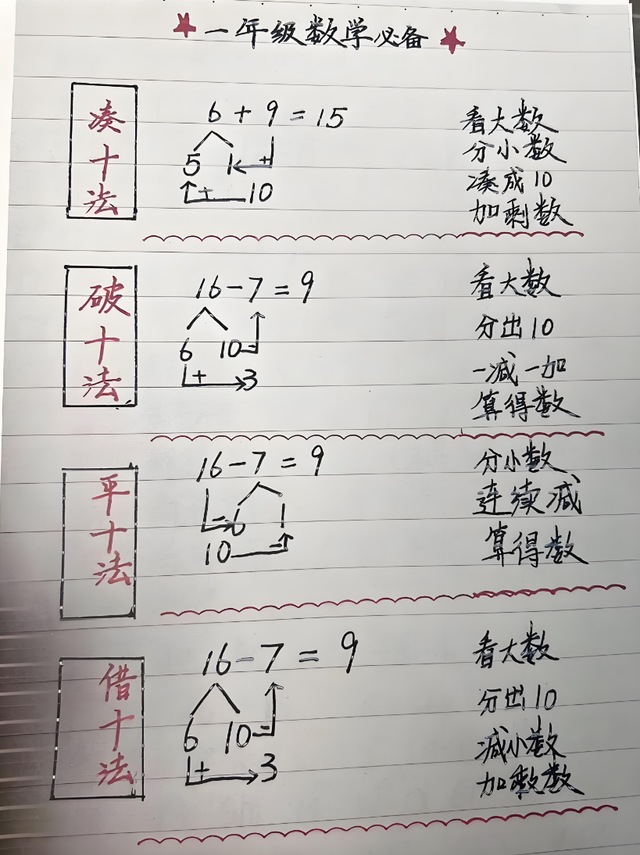 ★一年级数学必备★
凑十法
6+9=15
5 1 +
+ 10
看大数
分小数
凑成10
加剩数
破十法
16-7=9
6 10-
1+ 3
看大数
分出10
一减一加
算得数
平十法
16-7=9
-6 1
10 -
分小数
连续减
算得数
借十法
16-7=9
6 10-
1+ 3
看大数
分出10
减小数
加剩数